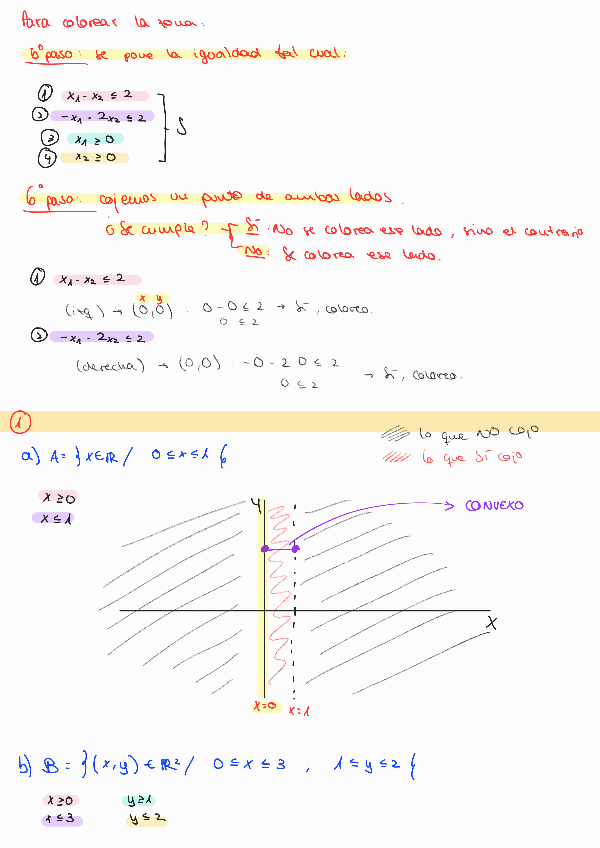 Para colorear la zona:
6º paso: se pone la igualdad tal cual:
① x1 - x2 ≤ 2
② -x1 - 2x2 ≤ 2
③ x1 ≥ 0
④ x2 ≥ 0
S
6º paso: cojemos un punto de ambos lados.
¿Se cumple? Sí: No se colorea ese lado, sino el contrario
No: Se colorea ese lado.
① x1 - x2 ≤ 2
x y
(izq) → (0,0) : 0-0 ≤ 2 → Sí, coloreo.
0 ≤ 2
② -x1 - 2x2 ≤ 2
(derecha) → (0,0) : -0-2·0 ≤ 2
0 ≤ 2 → Sí, coloreo.
①
lo que NO cojo
a) A = }x∈ℝ / 0 ≤ x ≤ 1{
lo que Sí cojo
x ≥ 0
x ≤ 1
Y
CONVEXO
X
x=0 x=1
b) B = }(x,y) ∈ ℝ² / 0 ≤ x ≤ 3 , 1 ≤ y ≤ 2{
x ≥ 0 y ≥ 1
x ≤ 3 y ≤ 2